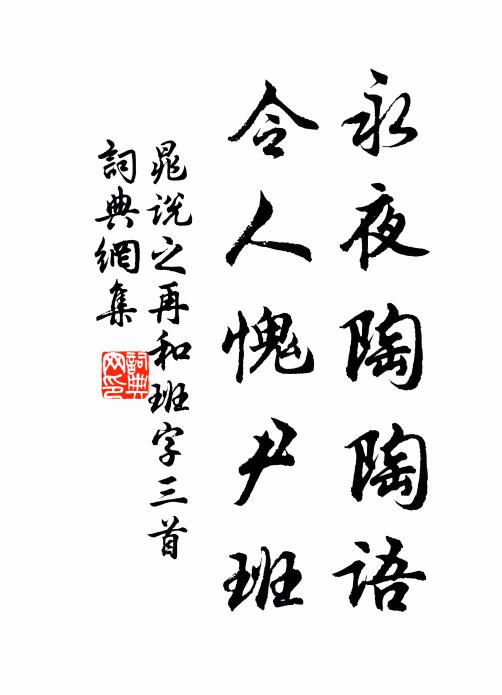 永夜陶陶語
令人愧尹班
晁說之再和班字三首
詞典網集
詞典網印